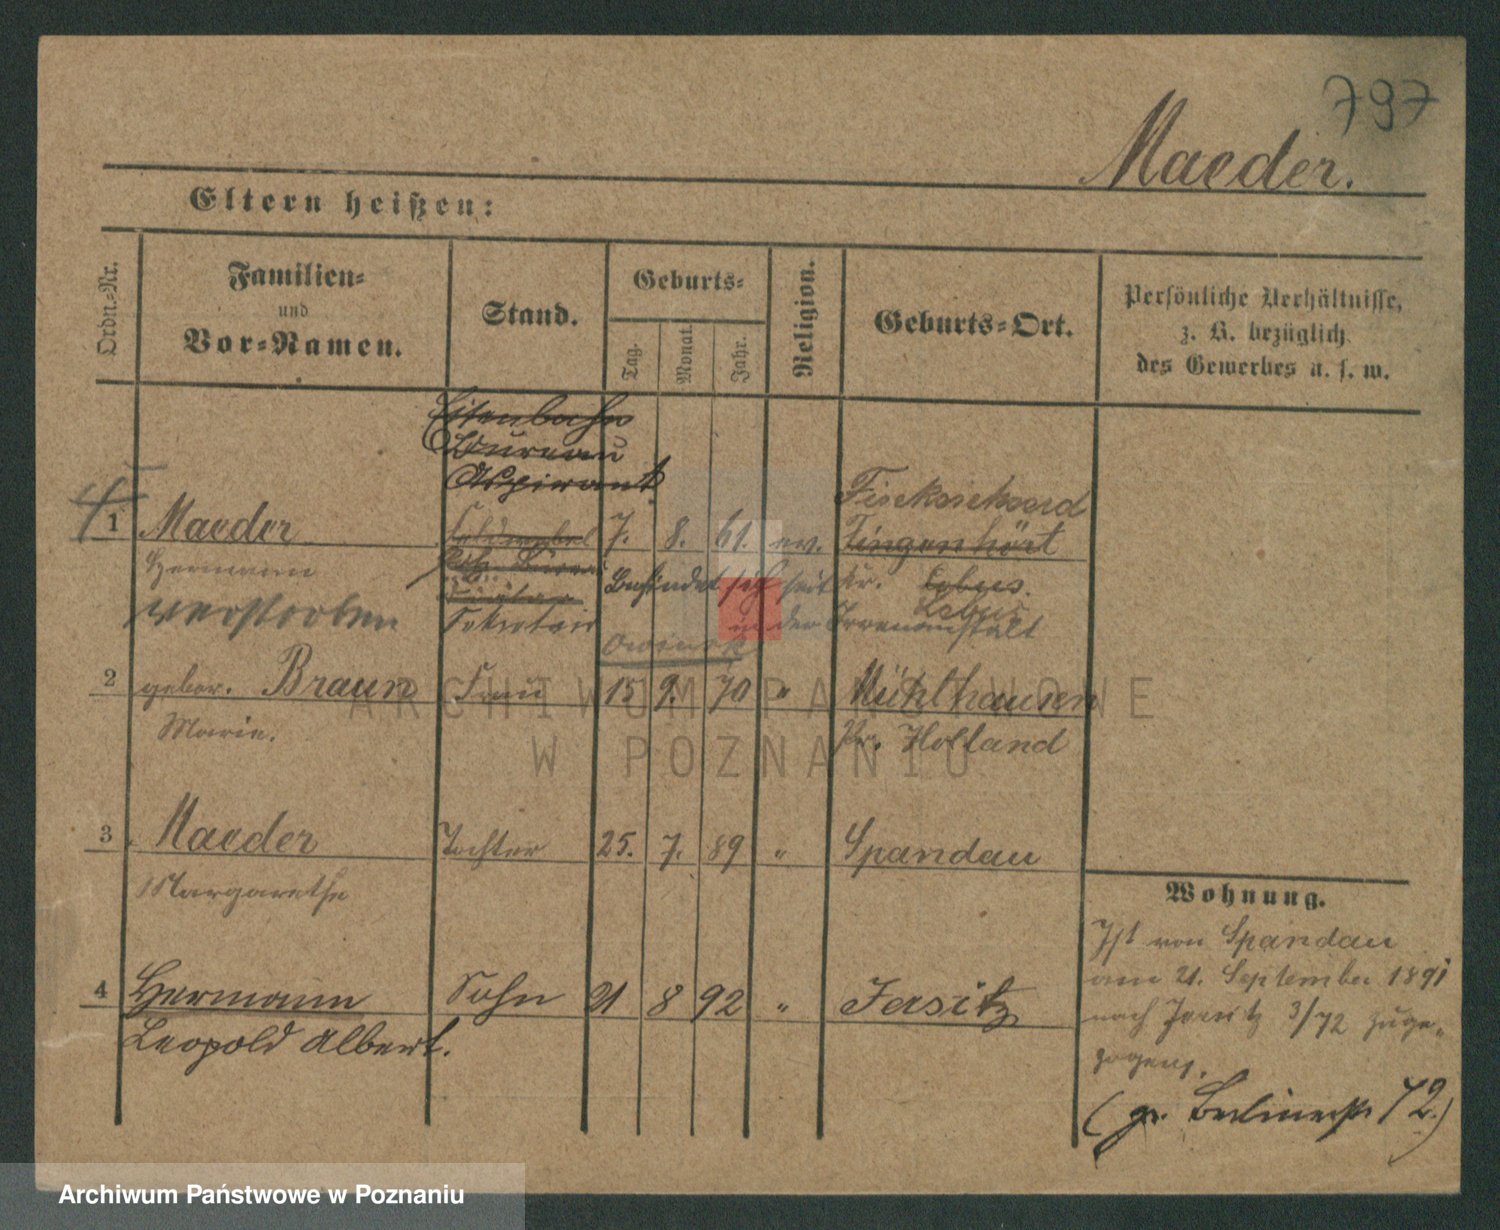 797
Maeder.
Eltern heißen:
Ordn.-Nr.
Familien-
und
Vor-Namen.
Stand.
Geburts-
Tag.
Monat.
Jahr.
Religion.
Geburts-Ort.
Persönliche Verhältnisse,
z. B. bezüglich
des Gewerbes u. s. w.
Eisenbahn
Bureau
Aspirant
1 Maeder Feldwebel 7. 8. 61. ev.
Tingenhört
Hermann
Befindet sich seit
Kr. Lebus.
Lebus
verstorben
Sekretair
in der Irrenanstalt
Owinsk
2 gebor. Braun Frau 15 9. 70 " Mühlhausen
Marie.
Pr. Holland
3 Maeder Tochter 25. 7. 89 " Spandau
Margarethe
Wohnung.
Ist von Spandau
am 21. September 1891
nach Jersitz 3/72 zuge-
zogen.
(gr. Berlinerstr 72.)
4 Hermann Sohn 21 8 92 " Jersitz
Leopold Albert.
ARCHIWUM PAŃSTWOWE
W POZNANIU
Archiwum Państwowe w Poznaniu